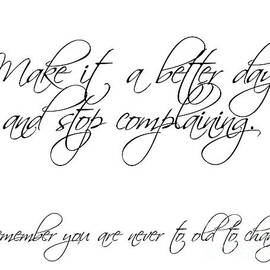 Make it a better day
and stop complaining.
emember you are never to old to chan